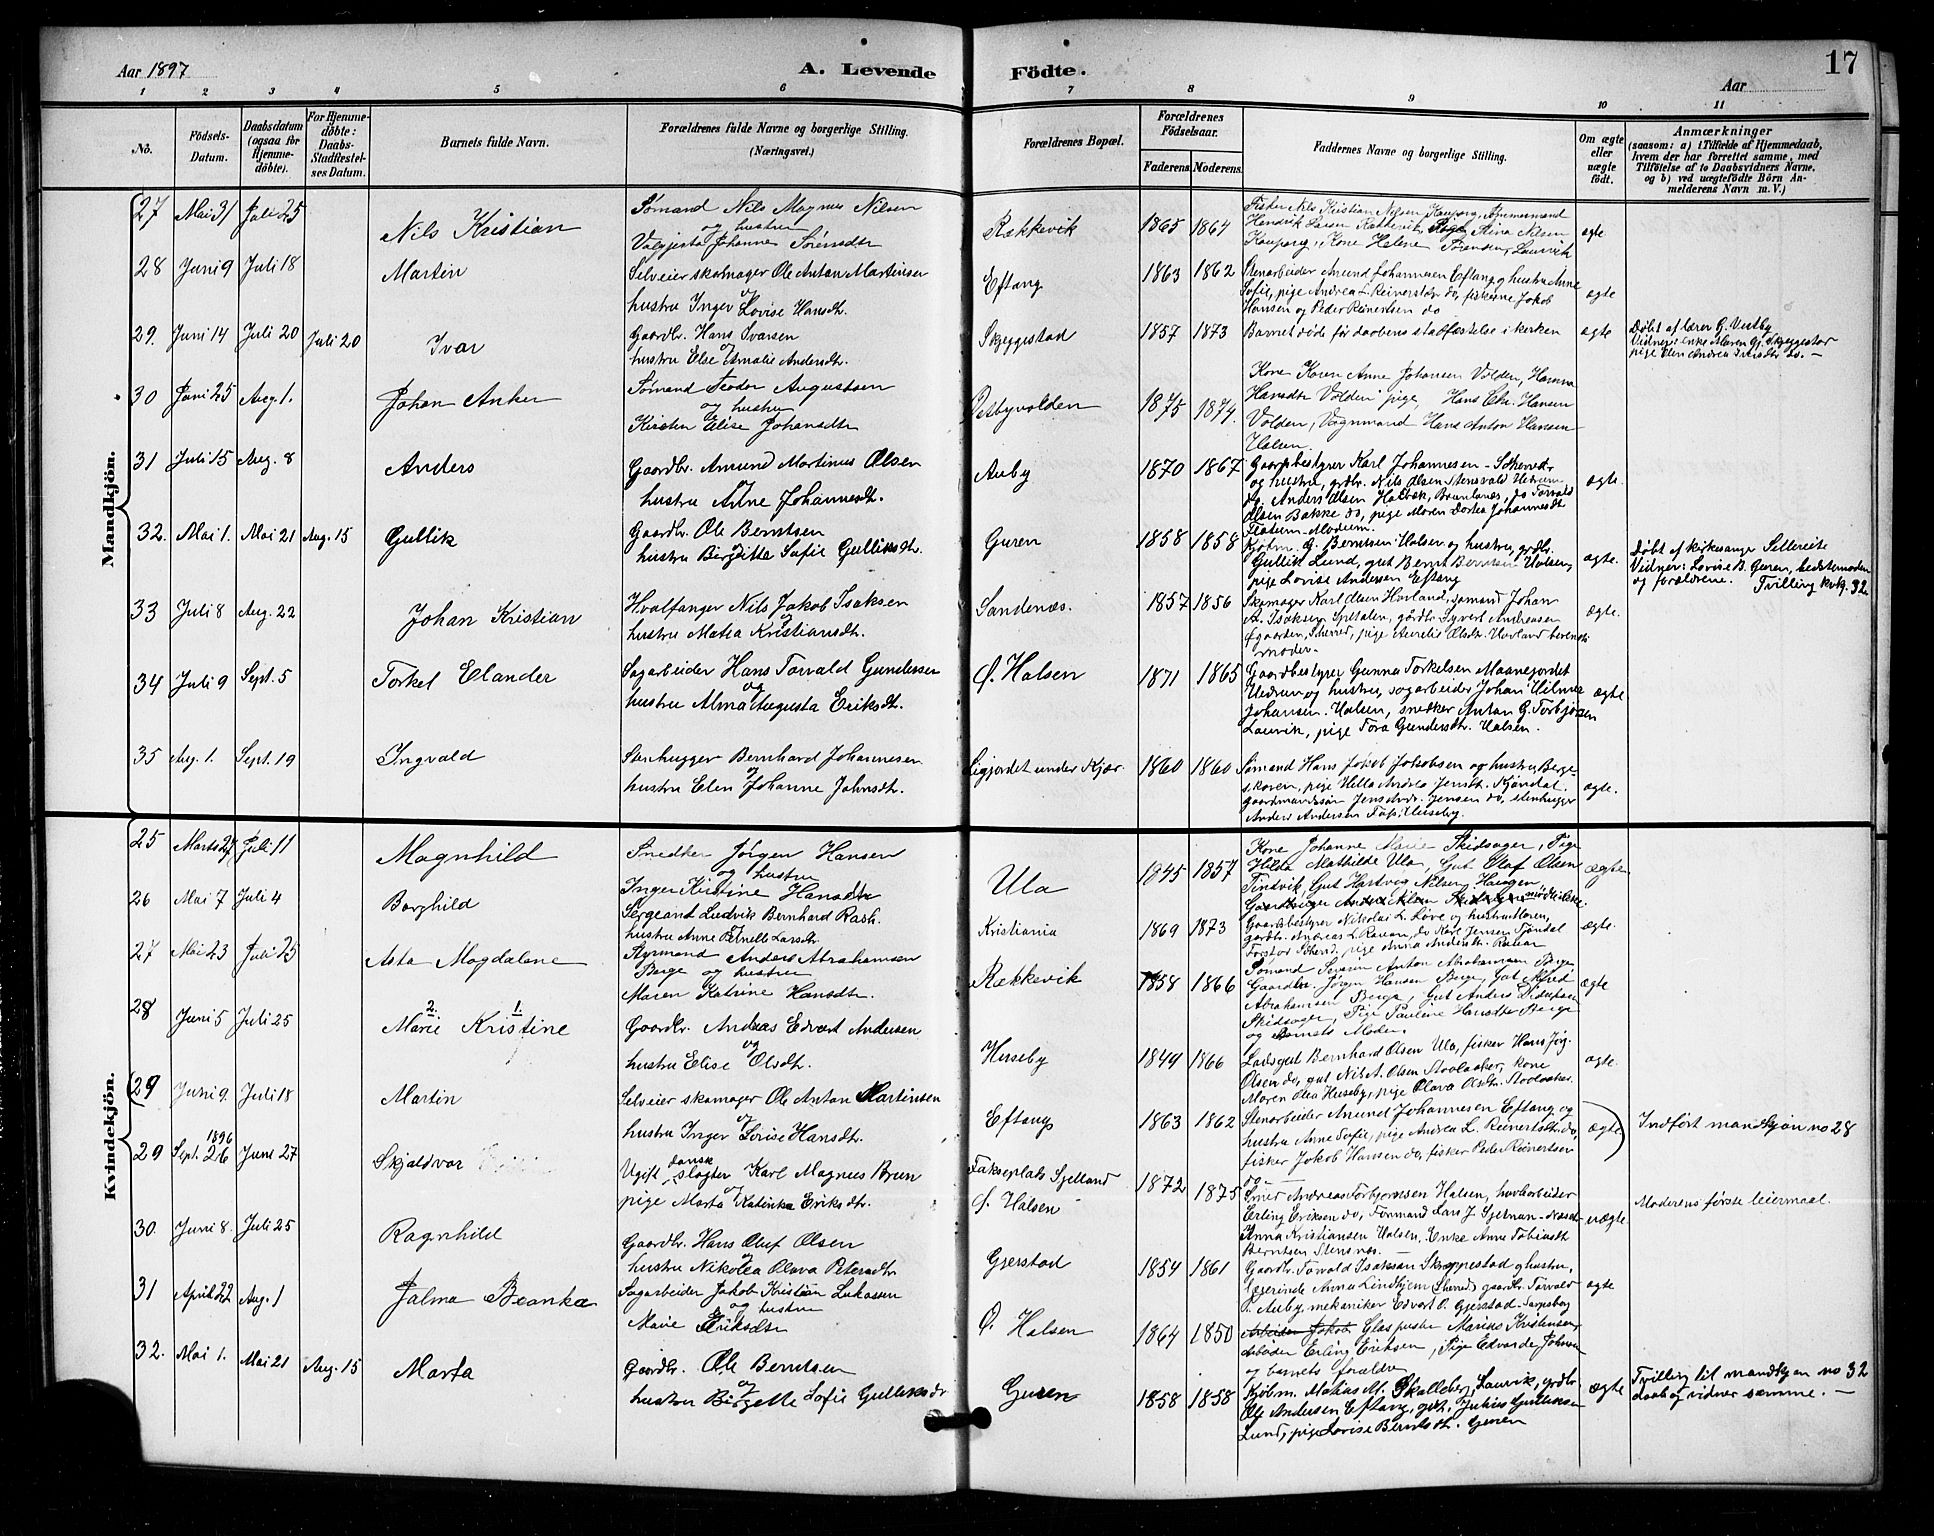 Aar 1897
A. Levende
Födte.
Aar
17
1 2 3 4 5 6 7 8 9 10 11
No.
Födsels-Datum.
Daabsdatum (ogsaa for Hjemmedöbte).
For Hjemmedöbte: Daabs-Stadfæstelses Datum.
Barnets fulde Navn.
Forældrenes fulde Navne og borgerlige Stilling. (Næringsvei.)
Forældrenes Bopæl.
Forældrenes Födselsaar.
Faderens. Moderens.
Faddernes Navne og borgerlige Stilling.
Om ægte eller uægte födt.
Anmærkninger
(saasom: a) i Tilfælde af Hjemmedaab,
hvem der har forrettet samme, med
Tilföielse af to Daabsvidners Navne,
og b) ved uægtefödte Börn An-
melderens Navn m. V.)
Mandkjön.
27 Mai 31 Juli 25 Nils Kristian
Sømand Nils Magnus Nilsen
og hustru
Valgjerta Johanne Sørensdtr
Rækkevik 1865 1864
Fisker Nils Kristian Nilsen Kaupang, Tømmermand
Hendrik Larsen Rækkevik, Pige Stina Nilsen
Kaupang, Kone Helene Sørensen, Laurvik
ægte
28 Juni 9 Juli 18 Martin
Selveier skomager Ole Anton Martinsen
og
hustru Inger Lovise Hansdtr.
Eftang 1863 1862
Stenarbeider Amund Johannesen Eftang og hustru Anne
Sofie, pige Andrea L. Reinertsdtr do, fiskerne Jakob
Hansen og Peder Reinertsen do
ægte
29. Juni 14 Juli 20 Juli 20 Ivar
Gaardbr. Hans Ivarsen
og
hustru Else Amalie Andersdtr.
Skjeggestad 1857 1873
Barnet døde før daabens stadfæstelse i kirken
ægte
Døbt af lærer G. Vestby
Vidner: enke Maren Gj. Skjeggestad
pige Elen Andrea do. —
30 Juni 25 Aug. 1. Johan Anker
Sømand Teodor Augustsen
og hustru
Kirsten Elise Johansdtr
Østbyvolden 1875 1874.
Kone Karen Anne Johansen Volden, Hanna
Hansdtr Volden pige, Hans Chr. Hansen
Volden, Vognmand Hans Anton Hansen
Halsen
31 Juli 15 Aug. 8 Anders
Gaardbr. Amund Martinus Olsen
og
hustru Anne Johannesdtr.
Auby 1870 1867
Gaardsbestyrer Karl Johannesen - Skjerved
og hustru, grdbr. Nils Olsen Stensvald Hedrum
dg. Anders Olsen Holbæk, Brunlanæs, do Torvald
Olsen Bakke do, pige Maren Dortea Johannesdt
Modum.
ægte.
32. Mai 1. Mai 21 Aug. 15 Gullik
Gaardbr. Ole Berntsen
og
hustru Birgitta Sofie Gulliksdtr.
Guren 1858 1858
Kjøbm. G. Berntsen Halsen og hustru, grdbr.
Gullik Lund, gut Bernt Berntsen Halsen,
pige Lovise Andersen Eftang
ægte.
Døbt af kirkesanger Sellereite
Vidner: Lovise B. Guren, bedstemoderen
og forældrene. Tvilling kvk. 32
33 Juli 8 Aug. 22 Johan Kristian
Hvalfanger Nils Jakob Isaksen
og
hustru Matea Kristiansdtr.
Sandenæs. 1857 1856
Skomager Karl Olsen Havland, sømand Johan
A. Isaksen Spetalen, gårdbr Syvert Andreasen
Øgaarden, Skerved, pige Aurelie Olsdtr. Havland barnets
moder.
ægte.
34 Juli 9 Sept. 5 Torkel Elander
Sagarbeider Hans Torvald Gundersen
og
hustru Alma Augusta Eriksdtr.
Ø. Halsen 1871 1865
Gaardbestyrer Gunna Torkelsen Maanejordet
Hedrum og hustru, sagarbeider Johan Hilmer
Johansen. Halsen, snedker Anton G. Torbjørnsen
Laurvik, pige Tora Gundersdtr. Halsen.
ægte
35 Aug. 1. Sept. 19 Ingvald
Stenhugger Bernhard Johannesen
og
hustru Elen Johanne Johnsdtr.
Ligjordet under Kjær 1860 1860
Sømand Hans Jakob Jakobsen og hustru, Berge-
skoven, pige Hilla Andrea Jensdtr. Kjøndal.
gaardmandssøn Jens Andr. Jensen do, stenhugger
Anders Andersen Huseby.
ægte.
Kvindekjön.
25 Marts 29 Juli 11 Magnhild
Snedker Jørgen Hansen
og hustru
Inger Kirstine Hansdtr
Ula 1845 1857
Kone Johanne Marie Skidsager, Pige
Hilda Mathilde Ula, Gut Olaf Olsen
Tindvik, Gut Hartvig Nilsen Haugen
ægte
26 Mai 7 Juli 4 Borghild
Sergeant Ludvik Bernhard Rask.
hustru Anne Petnelle Larsdtr.
Kristiania 1869 1873
Gaardsbestyrer Nikolai L. Løve og hustru Maren,
gardbr. Andreas L. Rauan, do Karl Jensen Tandal
pige Anna Andersdtr. Rauan
ægte.
27 Mai 23 Juli 25 Asta Magdalene
Styrmand Anders Abrahamsen
Berge og hustru
Maren Katrine Hansdtr.
Rækkevik 1858 1866
Sømand Søren Anton Abrahamsen Berge
Gaardbr. Jørgen Hansen Berge, Gut Alfred
Abrahamsen Berge, Gut Anders Didriksen
Skidsager, Pige Pauline Hansdtr Berge
og Barnets Moder.
ægte
28 Juni 5 Juli 25 2 Marie 1 Kristine
Gaardbr. Andreas Edvart Andersen
og
hustru Elise Olsdtr.
Huseby 1844 1866
Ladsgut Bernhard Olsen Ula, fisker Hans Jørg.
Olsen do, gut Nils A. Olsen Stolaaker, kone
Maren Olea Huseby, pige Olava Olsdtr. Stolaaker.
ægte.
(29 Juni 9. Juli 18 Martin
Selveier skomager Ole Anton Martinsen
og
hustru Inger Lovise Hansdtr.
Eftang 1863 1862
Stenarbeider Amund Johannesen Eftang og
hustru Anne Sofie, pige Andrea L. Reinertsdtr. do,
fisker Jakob Hansen do, fisker Peder Reinertsen
do —
ægte)
Indført mandkjøn no 28
29 1896 Sept. 26 June 27 Skjoldvor
Ugift dansk slagter Karl Magnus Brun
og
pige Marta Katinka Eriksdtr.
Fakseplads Sjelland
Ø. Halsen
1872 1875
Smed Andreas Torbjørnsen Halsen, havlarbeider
Erling Eriksen do, Formand Lars J. Sjerman - Næsedtr
Anna Kristiansen Halsen, Enke Anne Tobiasdt
Berntsen Stensnæs. —
uægte
Moderens første leiermaal.
30. Juni 8. Juli 25 Ragnhild
Gaardbr. Hans Oluf Olsen
og
hustru Nikolea Olava Petersdtr
Gjerstad 1854 1861
Gaardbr. Torvald Isaksen Skreppestad og hustru,
lærerinde Anna Lindhjem, gaardbr. Torvald
O. Auby mekaniker Edvart O. Gjerstad Sarpsborg
ægte
31 April 22 Aug. 1 Jalma Beanka
Sagarbeider Jakob Kristian Lukasen
og hustru
Marie Eriksdtr
Ø. Halsen 1864 1850
Arbeider Jakob Glaspuster Marius Kristensen,
Arbeider Erling Eriksen, Pige Edvarda Johnsen
og barnets forældre
32. Mai 1. Mai 21 Aug. 15 Marta
Gaardbr. Ole Berntsen
og
hustru Birgette Sofie Gulliksdtr
Guren 1858 1858
Kjøbm. Matias M. Skalleberg, Laurvik, grdbr.
Ole Andersen Eftang, gut Julius Gulliksen
Lund, pige Lovise Berntsdtr. Guren
ægte
Tvilling til mandkjøn no 32
daab og vidner samme. —